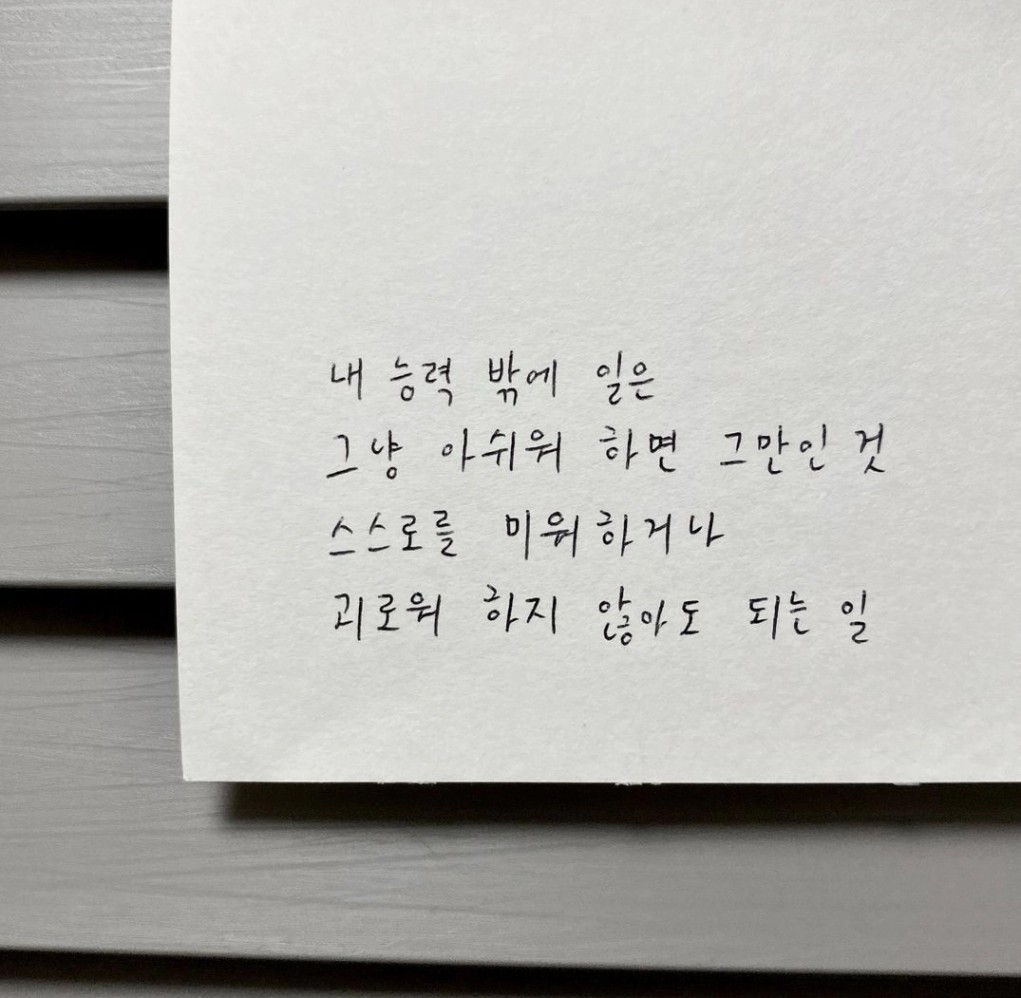 내 능력 밖에 일은
그냥 아쉬워 하면 그만인 것
스스로를 미워하거나
괴로워 하지 않아도 되는 일